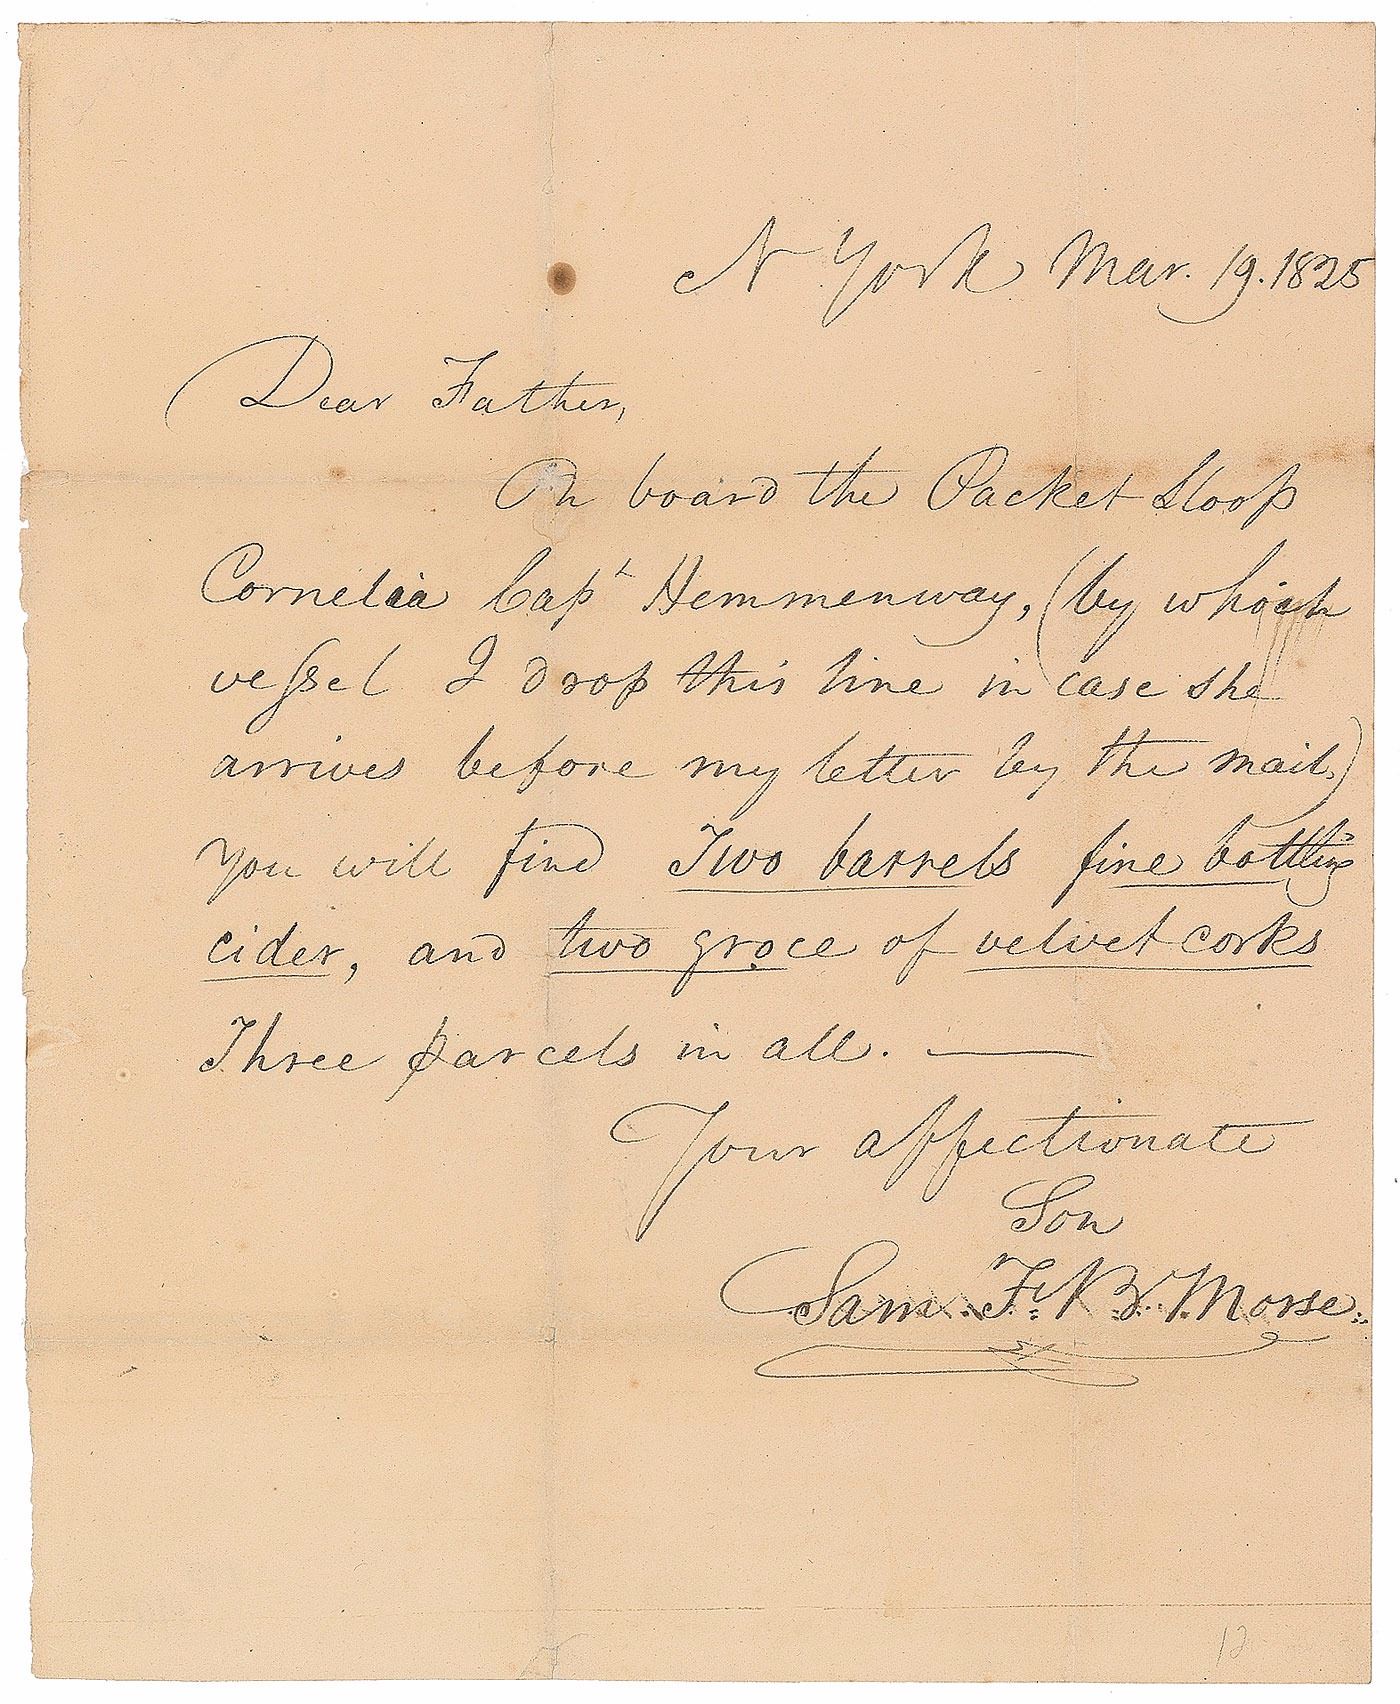 N York Mar. 19. 1825
Dear Father,
On board the Packet Sloop
Cornelia Capt Hemmenway, (by which
vessel I drop this line in case she
arrives before my letter by the mail,)
you will find Two barrels fine bottling
cider, and two groce of velvet corks
Three parcels in all. —
Your affectionate
Son
Sam. F. B. Morse.
12